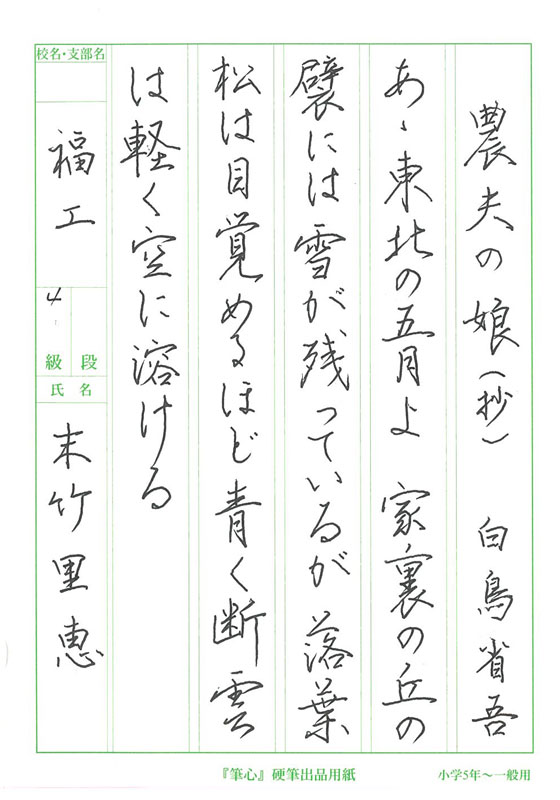 農夫の娘(抄) 白鳥省吾
あゝ東北の五月よ 家裏の丘の
襞には雪が残っているが 落葉
松は目覚めるほど青く断雲
は軽く空に溶ける
校名・支部名
福工
4
級 段
氏名
末竹里恵
『筆心』硬筆出品用紙
小学5年〜一般用